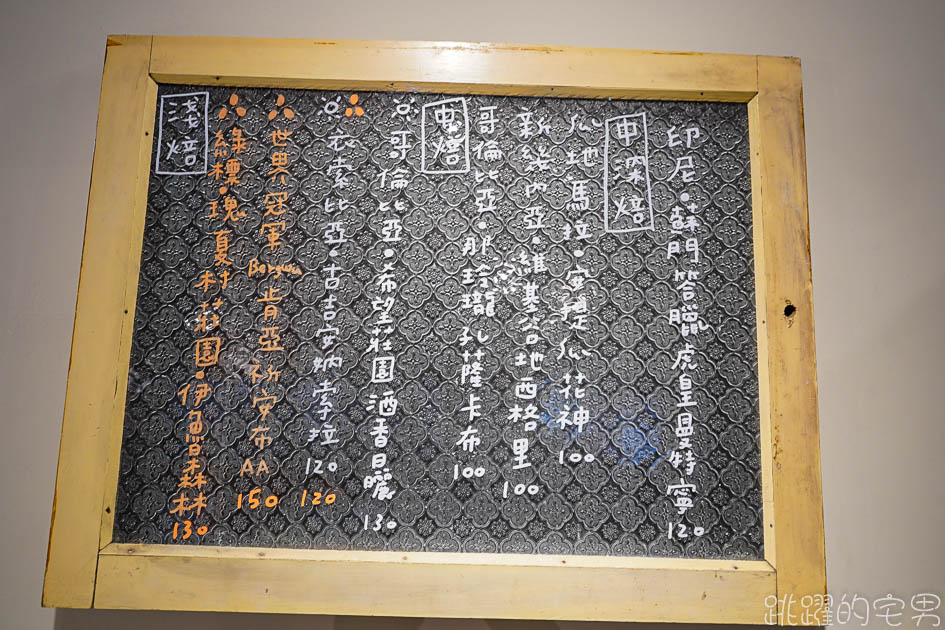 中深焙
印尼・蘇門答臘虎皇曼特寧 120
瓜地馬拉・安提瓜花神 100
新幾內亞・維基谷地西格里 100
哥倫比亞・那玲瓏孔薩卡布 100
中焙
哥倫比亞・希望莊園酒香日曬 130
衣索比亞・古吉安納索拉 120
120
世界冠軍 Berg wu 肯亞祈安布 AA 150
綠標・瑰夏村莊園・伊魯森林 130
淺焙
跳躍的宅男